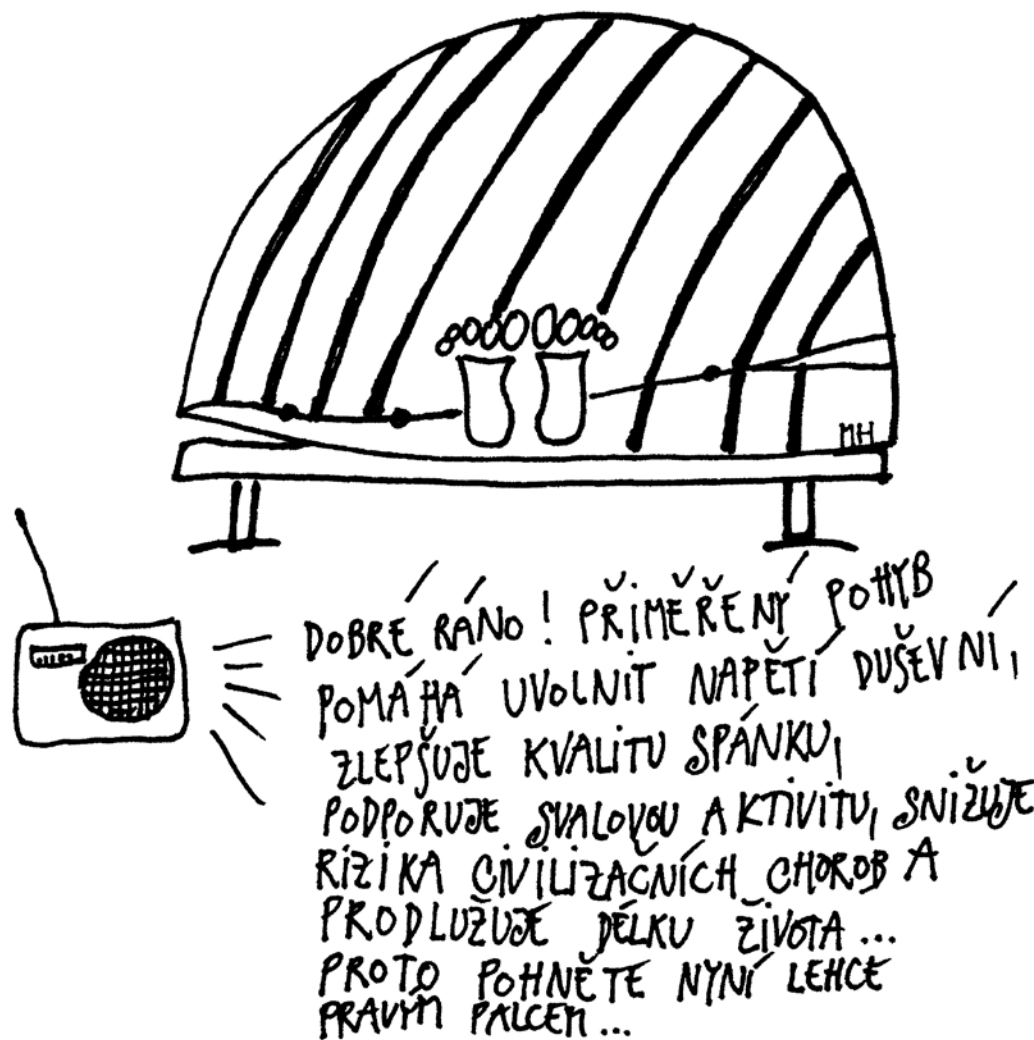 MH
DOBRÉ RÁNO! PŘIMĚŘENÝ POHYB
POMÁHÁ UVOLNIT NAPĚTÍ DUŠEVNÍ,
ZLEPŠUJE KVALITU SPÁNKU,
PODPORUJE SVALOVOU AKTIVITU, SNIŽUJE
RIZIKA CIVILIZAČNÍCH CHOROB A
PRODLUŽUJE DÉLKU ŽIVOTA...
PROTO POHNĚTE NYNÍ LEHCE
PRAVÝM PALCEM...